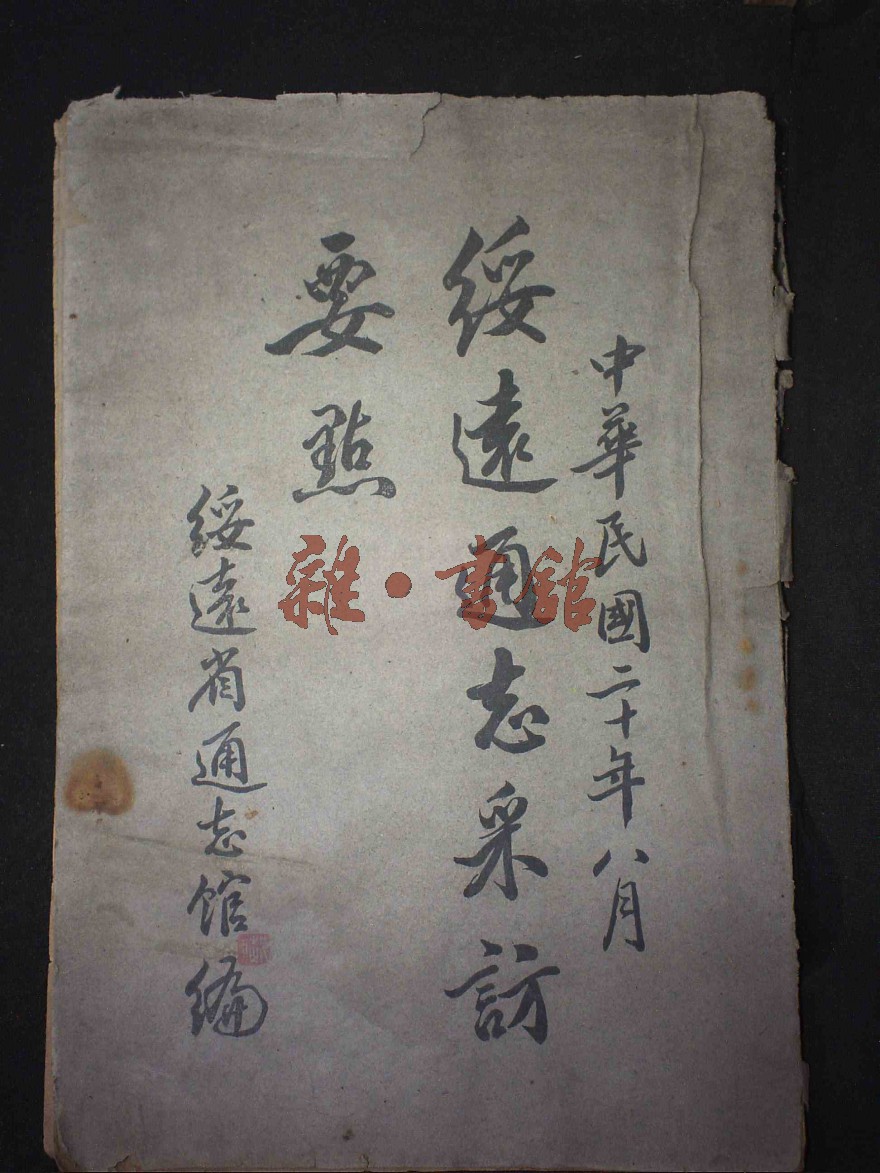 中華民國二十年八月
綏遠通志采訪
要點
綏遠省通志館編
雜·書館